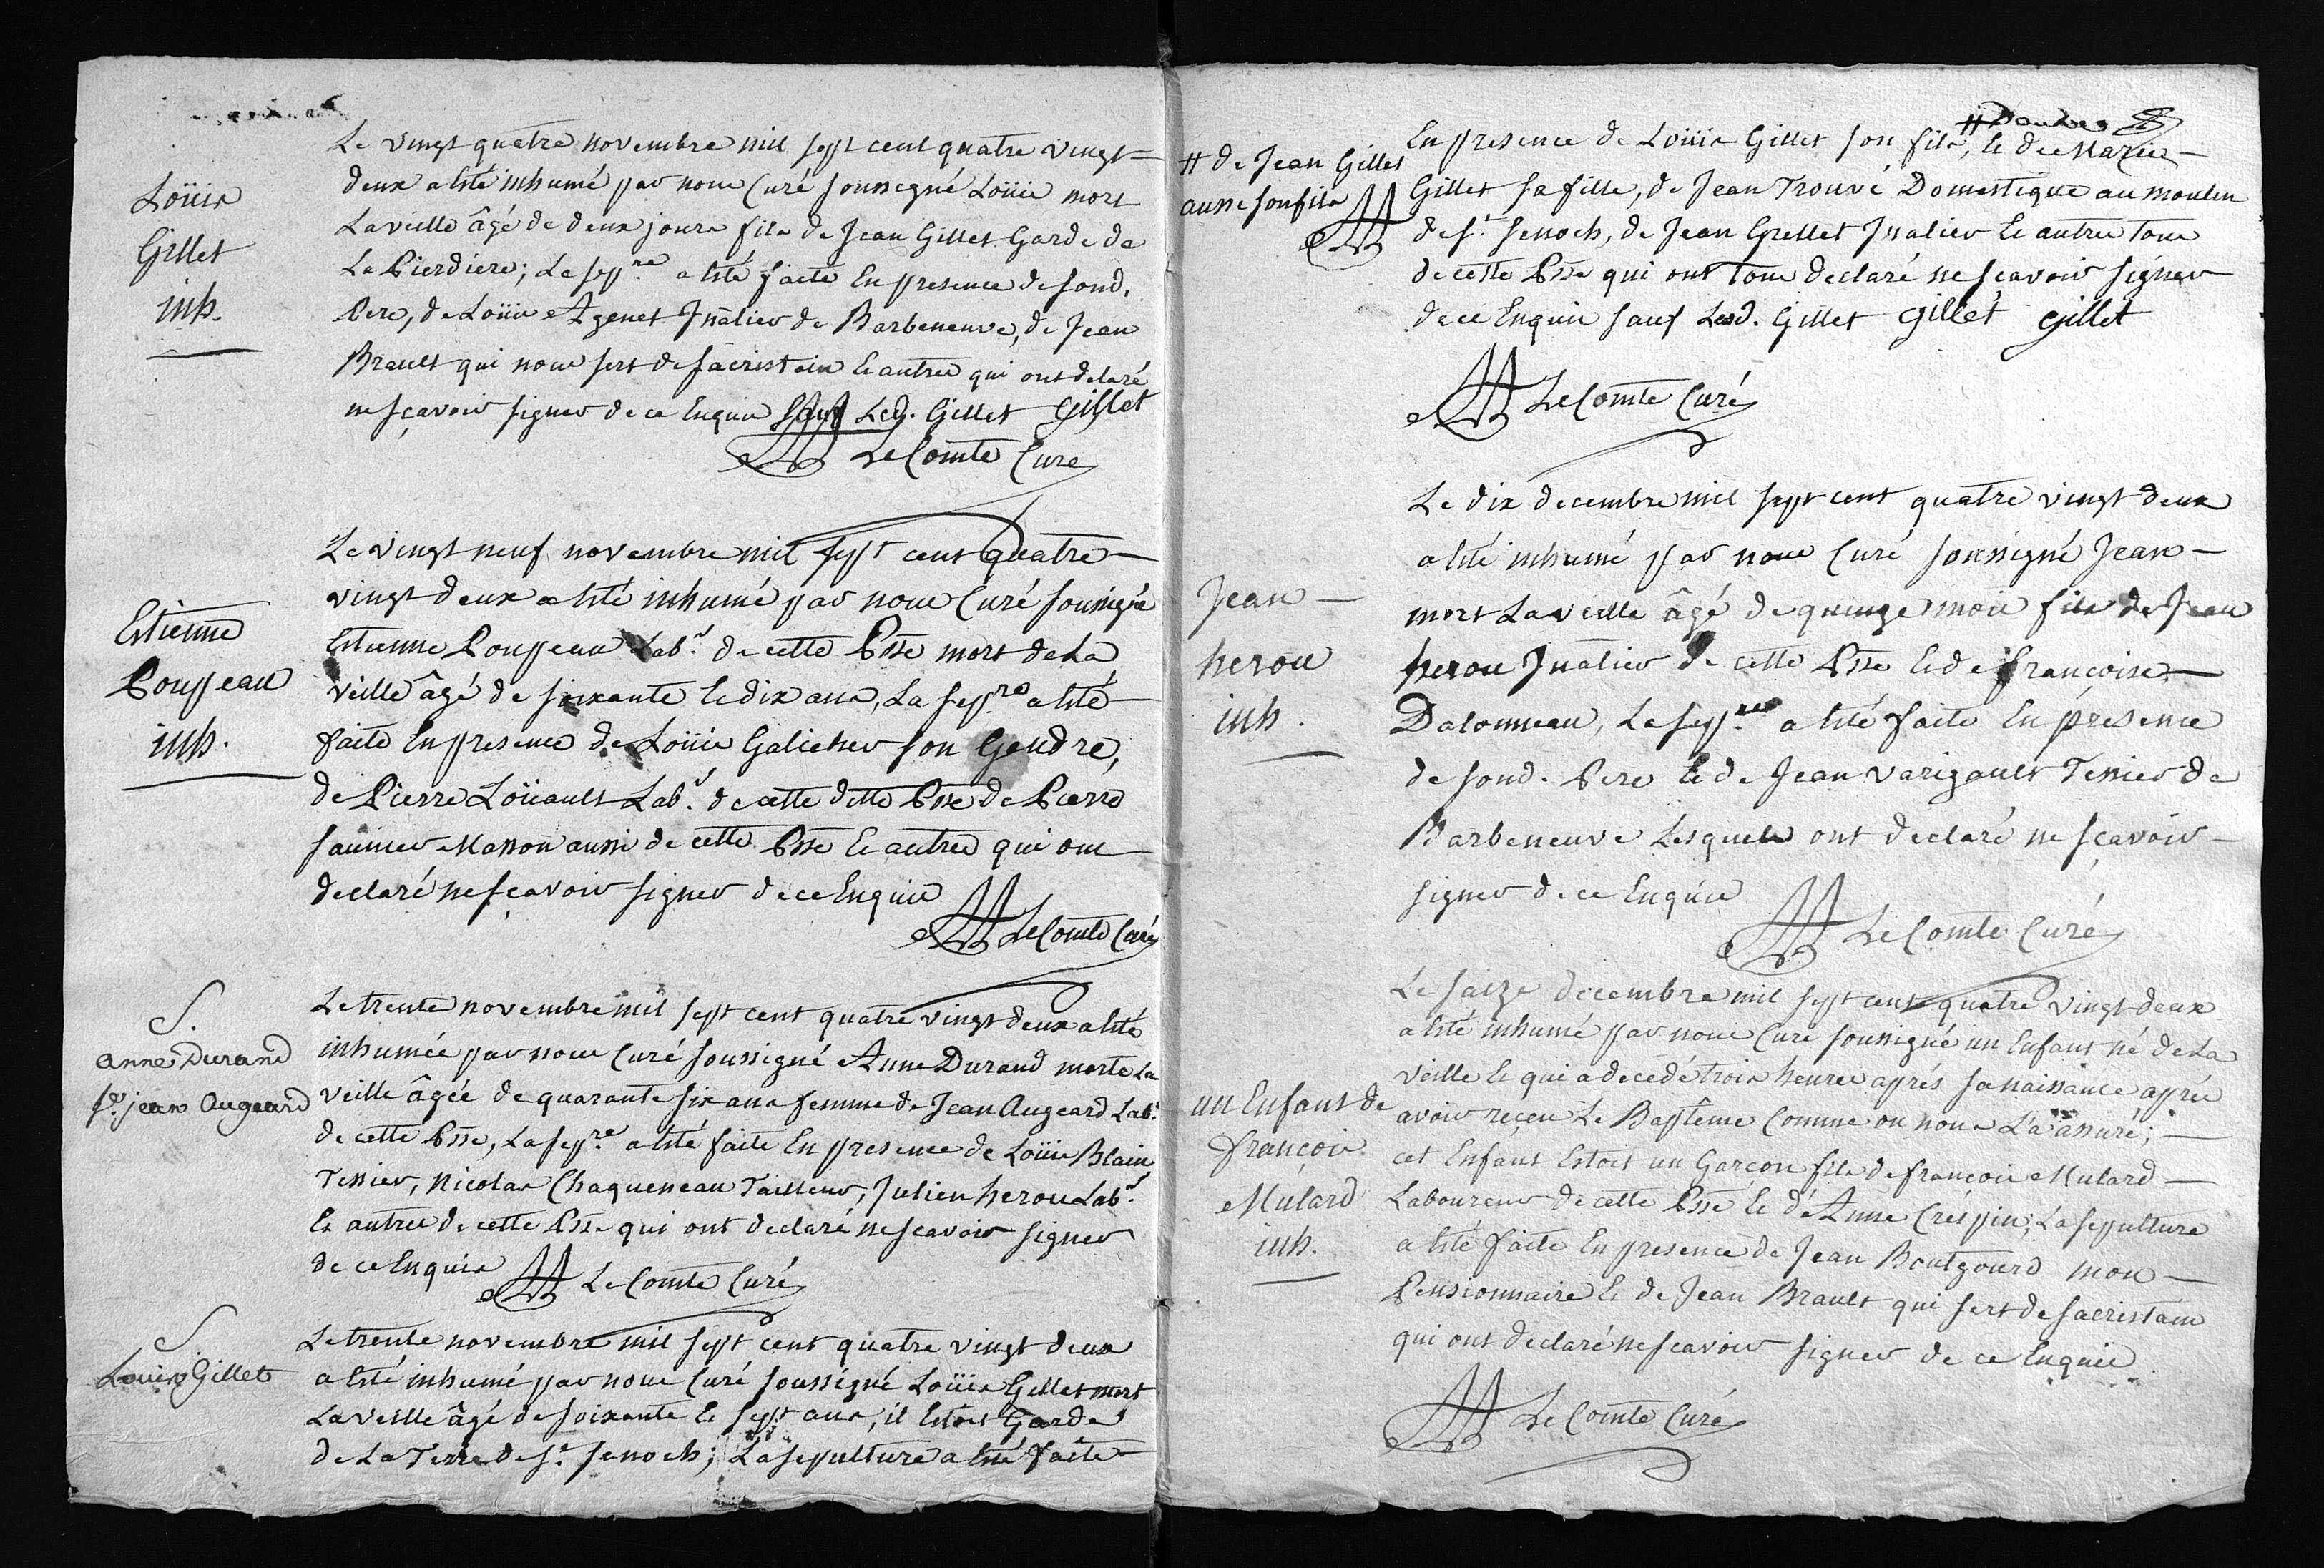 Loüis
Gillet
inh.
Le vingt quatre novembre mil sept cent quatre vingt
deux a été inhumé par nous Curé soussigné Loüis mort
La veille âgé de deux jours fils de Jean Gillet Garde de
La Pierdiere; La sepre a été faite En presence de sond.
Pere, de Loüis Agenet Jnalier de Barbeneuve, de Jean
Brault qui nous sert de sacristain Et autres qui ont declaré
ne sçavoir signer de ce Enquis sauf Led. Gillet Gillet
LeComte Curé
Estienne
Poupeau
inh.
Le vingt neuf novembre mil sept cent quatre
vingt deux a été inhumé par nous Curé soussigné
Estienne Poupeau Labr de cette Psse mort de La
veille âgé de soixante Et dix ans, La sepre a été
faite En presence de Loüis Galicher son Gendre,
de Pierre Loüault Labr de cette ditte Psse de Pierre
saunier Masson aussi de cette Psse Et autres qui ont
declaré ne sçavoir signer de ce Enquis
LeComte Curé
S.
anne Durand
fe jean Augeard
Le trente novembre mil sept cent quatre vingt deux a été
inhumée par nous Curé soussigné Anne Durand morte La
veille âgée de quarante six ans femme de Jean Augeard Labr
de cette Psse, La sepre a été faite En presence de Loüis Blain
Tessier, Nicolas Chaqueneau Tailleur, Julien herou Labr
Et autres de cette Psse qui ont declaré ne scavoir signer
de ce Enquis LeComte Curé
S.
Louis Gillet
Le trente novembre mil sept cent quatre vingt deux
a été inhumé par nous Curé soussigné Loüis Gillet mort
La veille âgé de soixante Et sept ans, il Etoit Garde
de La Terre de St senoch; La sepulture a été faite
# de Jean Gillet
aussi son fils
En presence de Loüis Gillet son fils, # Et de Marie
Gillet sa fille, de Jean Trouvé Domestique au moulin
de St senoch, de Jean Grellet Jnalier Et autres tous
de cette Psse qui ont tous declaré ne scavoir signer
de ce Enquis sauf Lesd. Gillet Gillet Gillet
LeComte Curé
Jean
herou
inh.
Le dix decembre mil sept cent quatre vingt deux
a été inhumé par nous Curé soussigné Jean
mort La veille âgé de quinze mois fils de Jean
herou Jnalier de cette Psse Et de françoise
Dalonneau, La sepre a été faite En presence
de sond. Pere Et de Jean Varigault Tessier de
Barbeneuve Lesquels ont declaré ne sçavoir
signer de ce Enquis
LeComte Curé
un Enfant de
françois
Mulard
inh.
Le saize decembre mil sept cent quatre vingt deux
a été inhumé par nous Curé soussigné un Enfant né de La
veille Et qui a decedé trois heures aprés sa naissance aprés
avoir reçeu Le Baptême Comme on nous L'a assuré;
cet Enfant Estoit un Garcon fils de françois Mulard
Laboureur de cette Psse Et d'Anne Créspin; La sepulture
a été faite En presence de Jean Boutgourd mon
Pensionnaire Et de Jean Brault qui sert de sacristain
qui ont declaré ne scavoir signer de ce Enquis
LeComte Curé